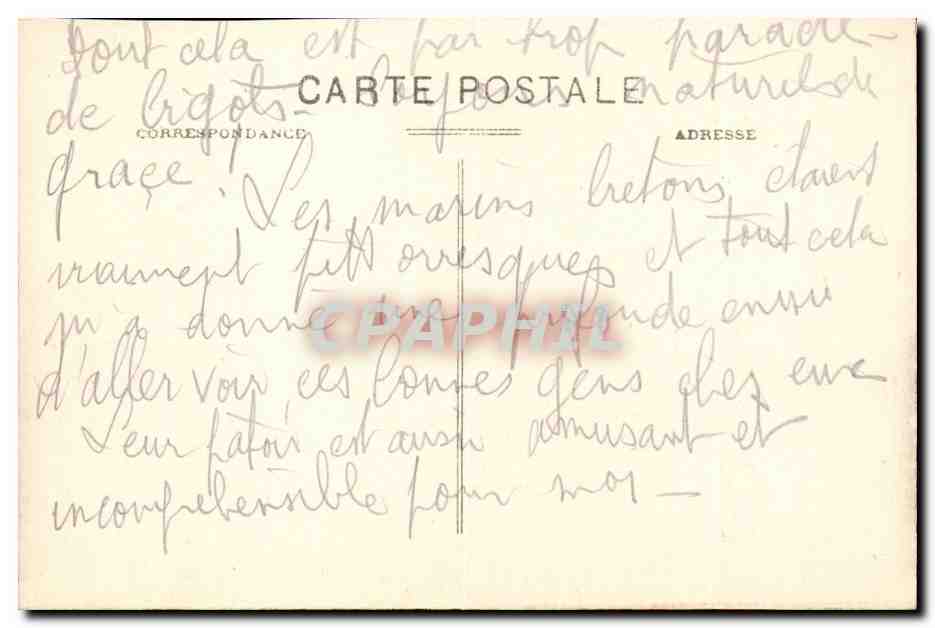 tout cela est par trop parade
de bigots - Soyons naturels de
CARTE POSTALE
CORRESPONDANCE
ADRESSE
grace !
Les marins bretons étaient
vraiment pittorresques et tout cela
m'a donné une profonde envie
d'aller voir ces bonnes gens chez eux
Leur patois est aussi amusant et
incompréhensible pour moi —
CPAPHIL